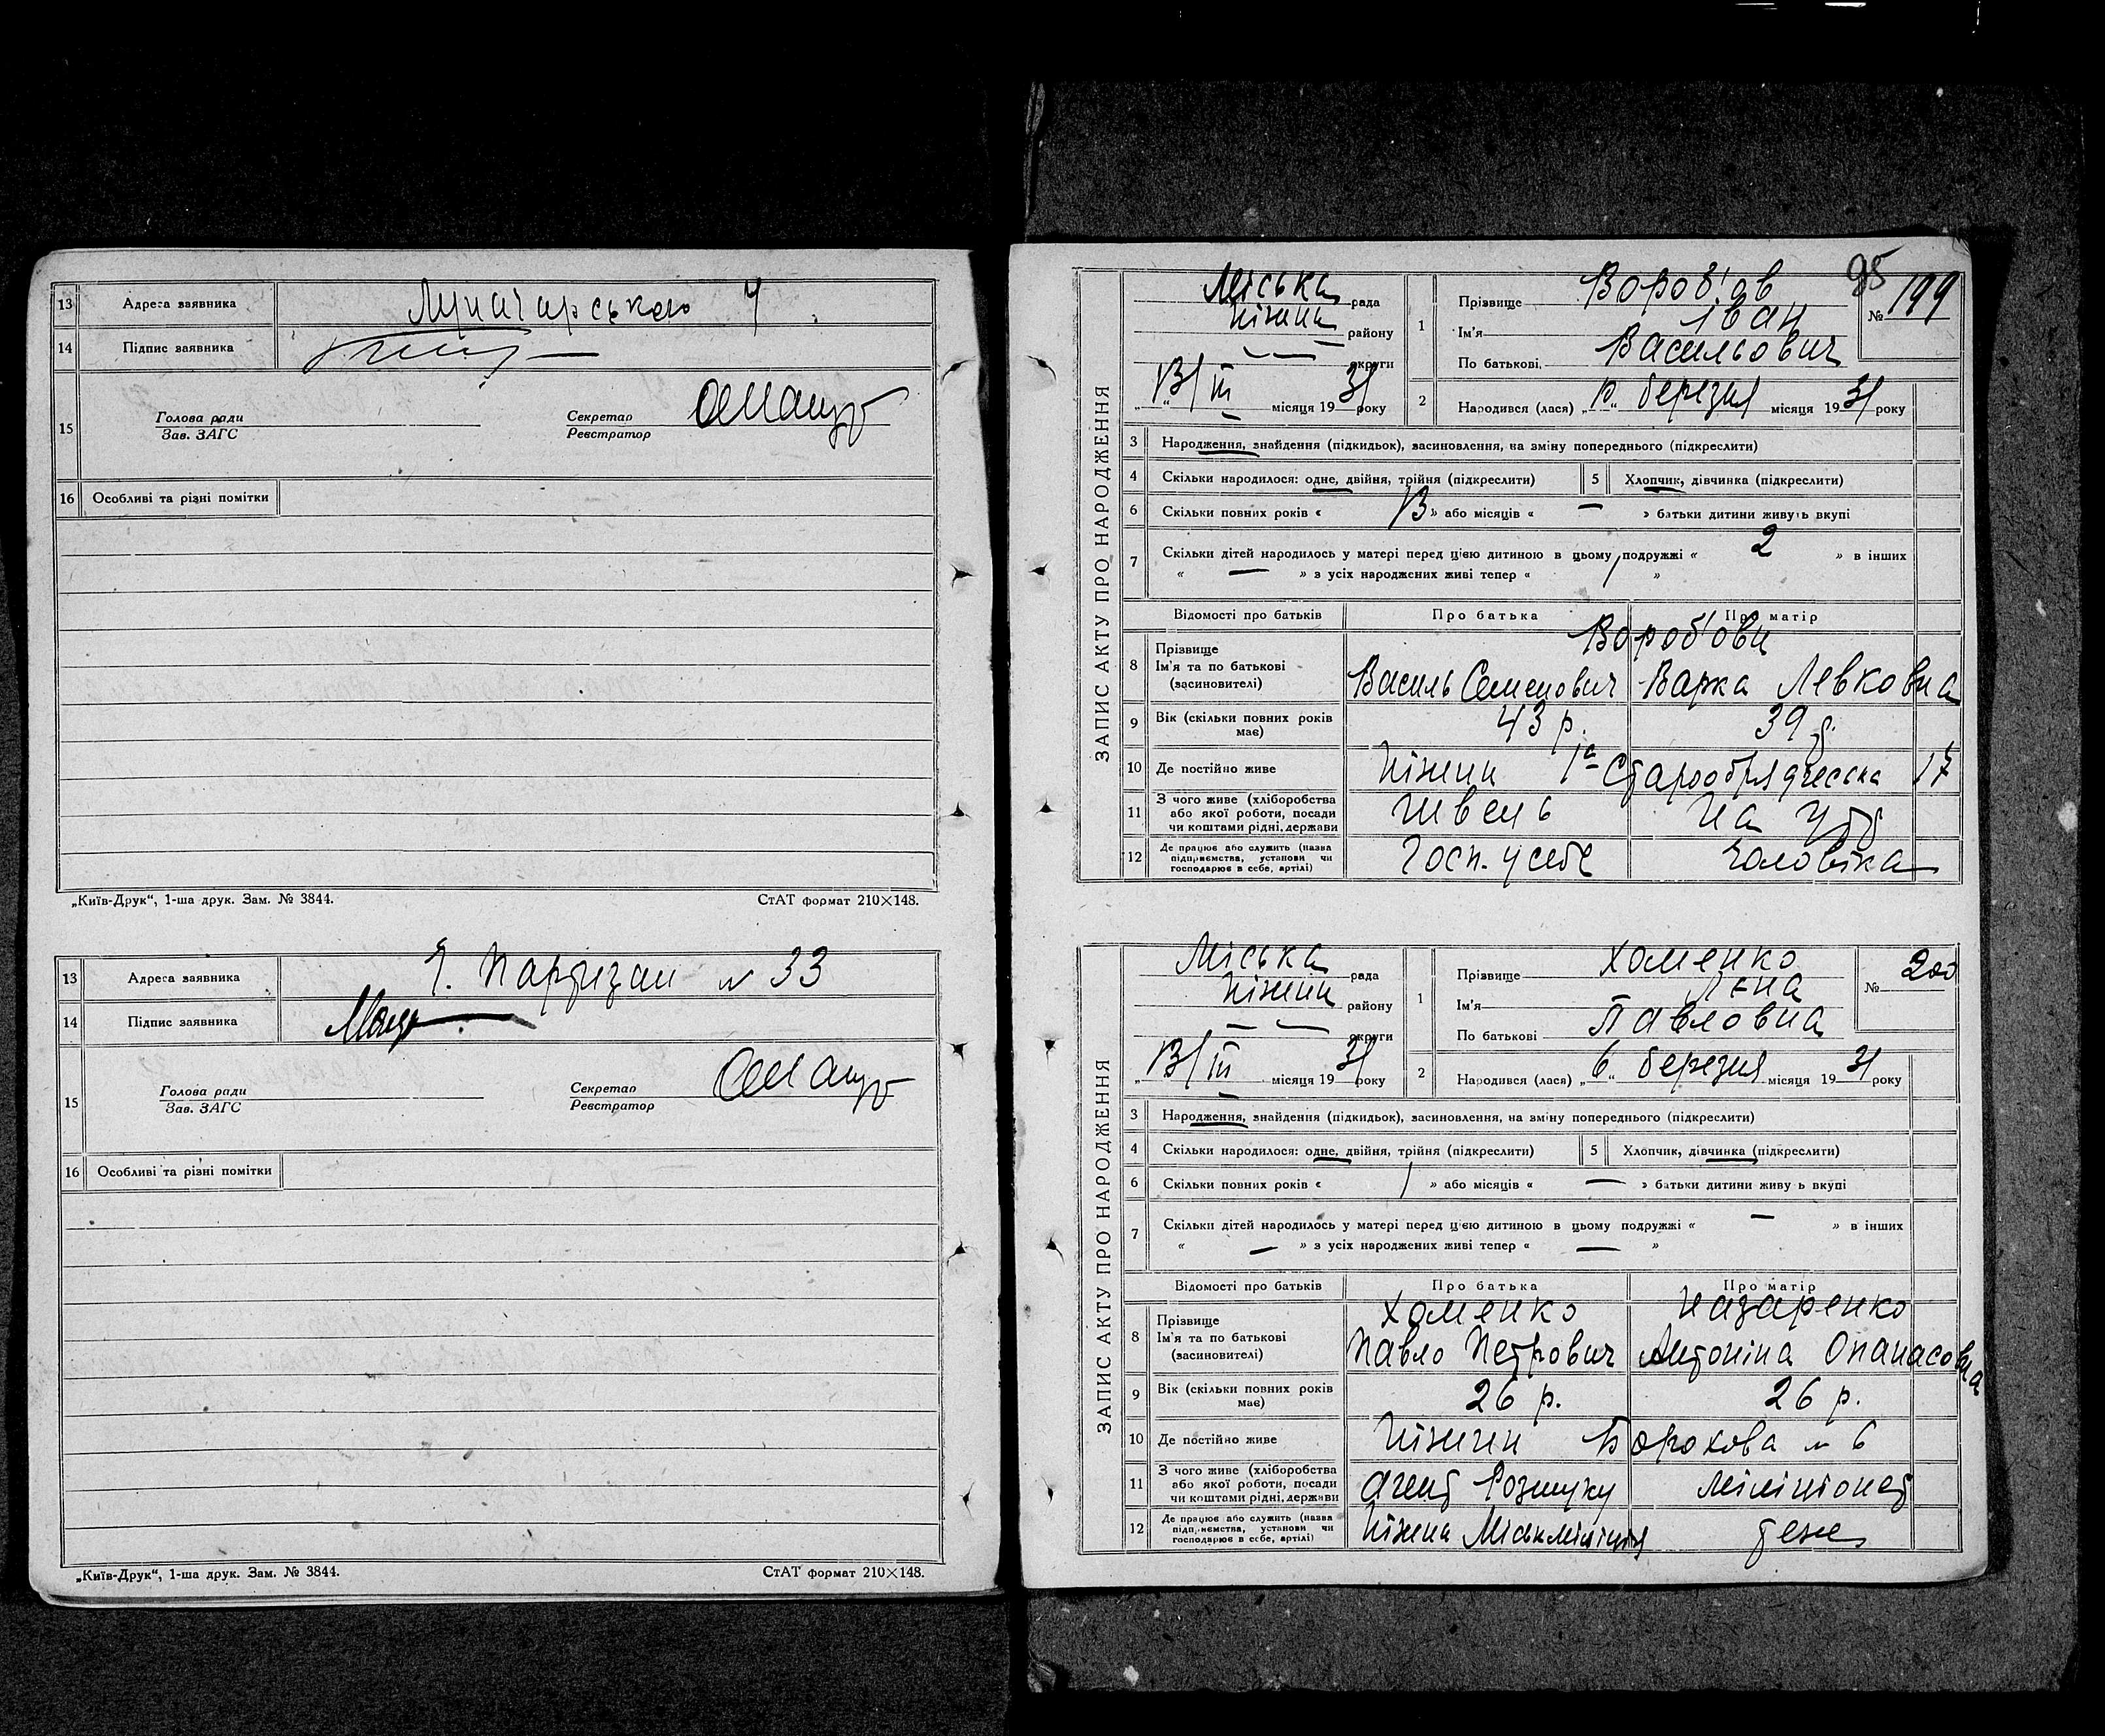 13 Адреса заявника Луначарського 4
14 Підпис заявника
15 Голова ради
Зав. ЗАГС
Секретар
Реєстратор
16 Особливі та різні помітки
„Київ-Друк“, 1-ша друк. Зам. № 3844. СтАТ формат 210×148.
13 Адреса заявника Ч. Партизан № 33
14 Підпис заявника
15 Голова ради
Зав. ЗАГС
Секретар
Реєстратор
16 Особливі та різні помітки
„Київ-Друк“, 1-ша друк. Зам. № 3844. СтАТ формат 210×148.
95
ЗАПИС АКТУ ПРО НАРОДЖЕННЯ
Міська рада
Ніжин району
округи
13/III місяця 1931 року
1 Прізвище Вороб'ов
Ім'я Іван
По батькові, Васильович
№ 199
2 Народився (лася) „ “ березня місяця 1931 року
3 Народження, знайдення (підкидьок), засиновлення, на зміну попереднього (підкреслити)
4 Скільки народилося: одне, двійня, трійня (підкреслити) 5 Хлопчик, дівчинка (підкреслити)
6 Скільки повних років « 13 » або місяців « — » батьки дитини живуть вкупі
7 Скільки дітей народилось у матері перед цією дитиною в цьому подружжі « 2 » в інших
« — » з усіх народжених живі тепер « 1 »
Відомості про батьків Про батька Про матір
8 Прізвище
Ім'я та по батькові
(засиновителі)
Вороб'ови
Василь Семенович Варка Левковна
9 Вік (скільки повних років має) 43 р. 39 р.
10 Де постійно живе Ніжин 1а Старообрядческа 17
11 З чого живе (хліборобства або якої роботи, посади чи коштами рідні, держави Швець На утр
12 Де працює або служить (назва підприємства, установи чи господарює в себе, артілі) Госп. у себе чоловіка
ЗАПИС АКТУ ПРО НАРОДЖЕННЯ
Міська рада
Ніжин району
округи
13/III місяця 1931 року
1 Прізвище Хоменко
Ім'я Лєна
По батькові Павловна
№ 200
2 Народився (лася) „ 6 “ березня місяця 1931 року
3 Народження, знайдення (підкидьок), засиновлення, на зміну попереднього (підкреслити)
4 Скільки народилося: одне, двійня, трійня (підкреслити) 5 Хлопчик, дівчинка (підкреслити)
6 Скільки повних років « 1 » або місяців « — » батьки дитини живуть вкупі
7 Скільки дітей народилось у матері перед цією дитиною в цьому подружжі « — » в інших
« — » з усіх народжених живі тепер « — »
Відомості про батьків Про батька Про матір
8 Прізвище
Ім'я та по батькові
(засиновителі)
Хоменко Назаренко
Павло Петрович Антоніна Опанасовна
9 Вік (скільки повних років має) 26 р. 26 р.
10 Де постійно живе Ніжин № 6
11 З чого живе (хліборобства або якої роботи, посади чи коштами рідні, держави Агент Розшуку Міліціонер
12 Де працює або служить (назва підприємства, установи чи господарює в себе, артілі) Ніжин Міськміліція теж